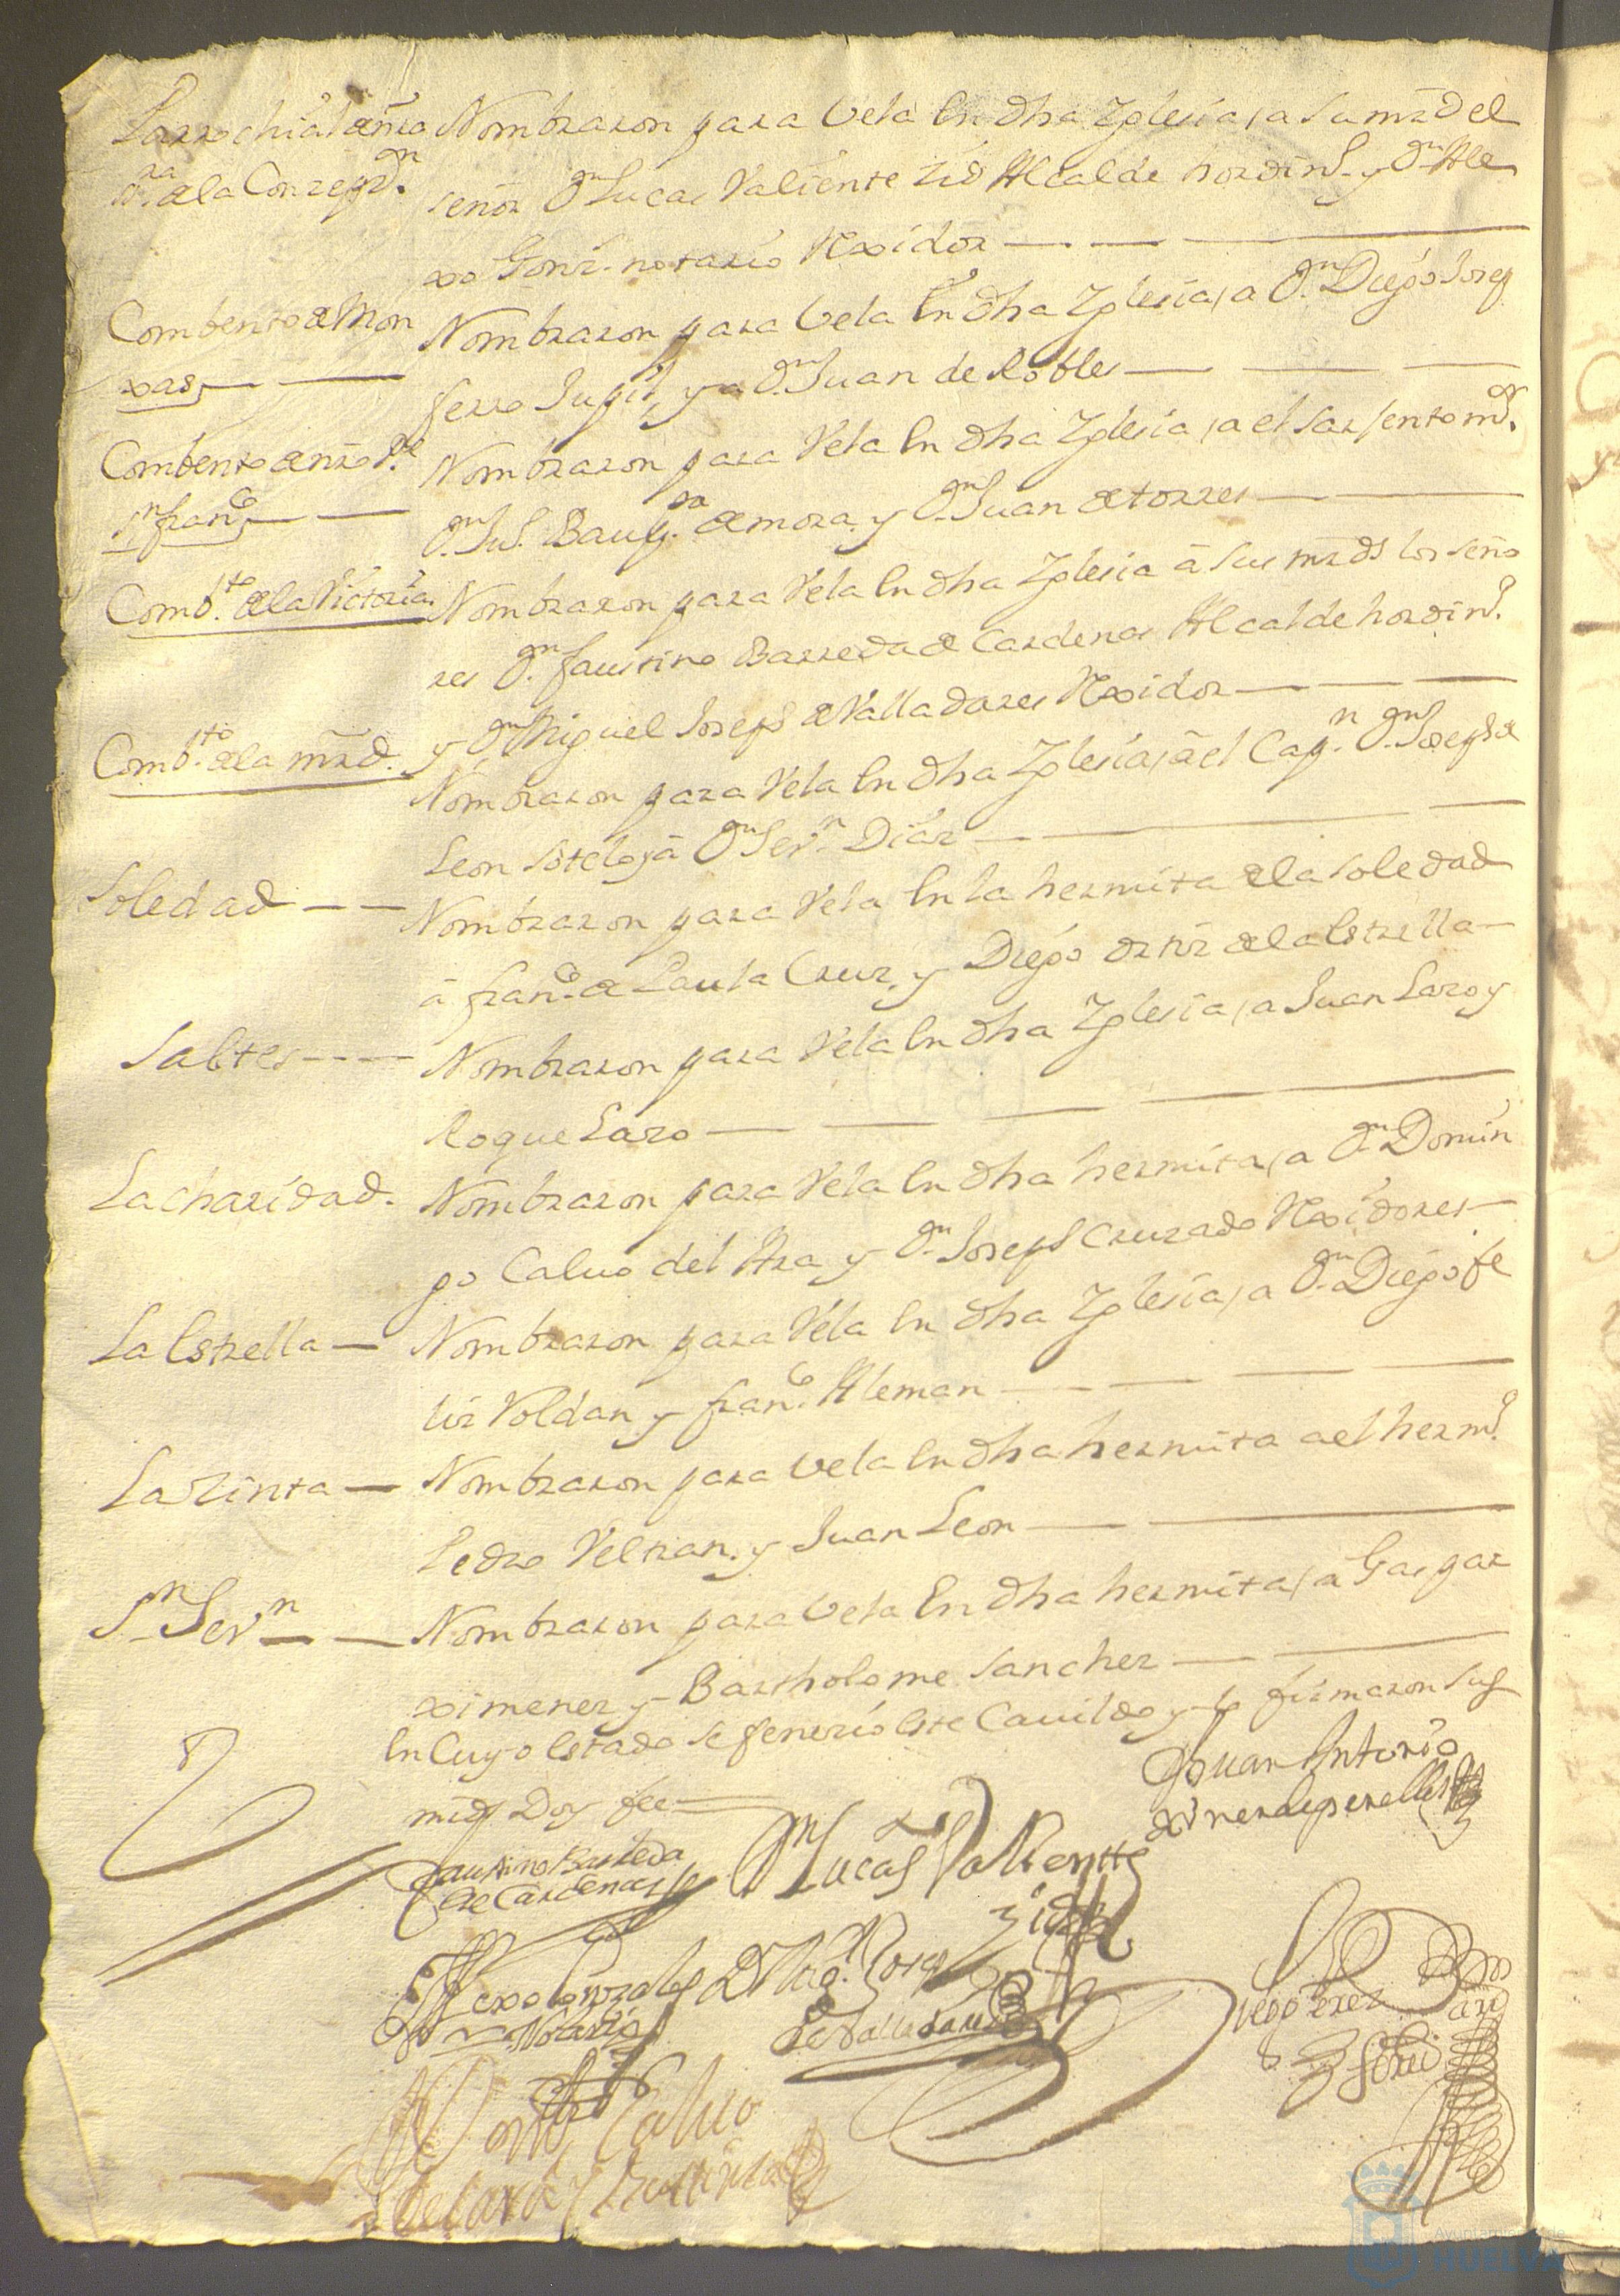 Parrochial de nra Nombraron para Vela En dha Yglesia, a su mrd el
Sra. de la Conzepon. señor Dn Lucas Valiente Zid Alcalde hordino. y Dn Ale
xo Gonz. notario Rexidor
Combento de Mon Nombraron para Vela En dha Yglesia, a Dn. Diego Josep
xas
ferro y a Dn. Juan de Robles
Combento de nro Pe. Nombraron para Vela En dha Yglesia, a el sarjento mor.
Sn. franco
Dn. Ju. Baupta. de mora, y Dn. Juan de torres
Combto. de la Victoria. Nombraron para Vela En dha Yglesia â sus mrds los seño
res Dn. faustino Barreda de Cardenas Alcalde hordino.
y Dn Miguel Joseph de Valladares Rexidor
Combto. de la mrd. Nombraron para Vela En dha Yglesia, â el Capn. Dn. Joseph de
Leon sotelo, â Dn Sevn. Diaz
Soledad Nombraron para Vela En la hermita de la soledad
â franco. de Paula Cruz, y Diego ortiz de la Estrella
Saltes Nombraron para Vela En dha Yglesia, a Juan Lazo y
Roque Lazo
La charidad. Nombraron para Vela En dha hermita, a Dn. Domin
go Calvo del Ara y Dn. Joseph Cruzado Rexidores
La Estrella Nombraron para Vela En dha Yglesia, a Dn. Diego fe
liz Roldan y franco. Aleman
La Zinta Nombraron para Vela En dha hermita a el hermo.
Pedro Veltran, y Juan Leon
Sn Sevn Nombraron para Vela En dha hermita, â Gaspar
ximenez y Bartholome Sanchez
En Cuyo Estado se fenezio Este Cavildo y lo firmaron sus
mrds Doy fee
Juan Antonio
Faustino Barreda
de Cardenas
Dn Lucas Valientte
Zid
Alexo Gonzales
Notario
Dn Mig. Josep
de Valladares
Calvo